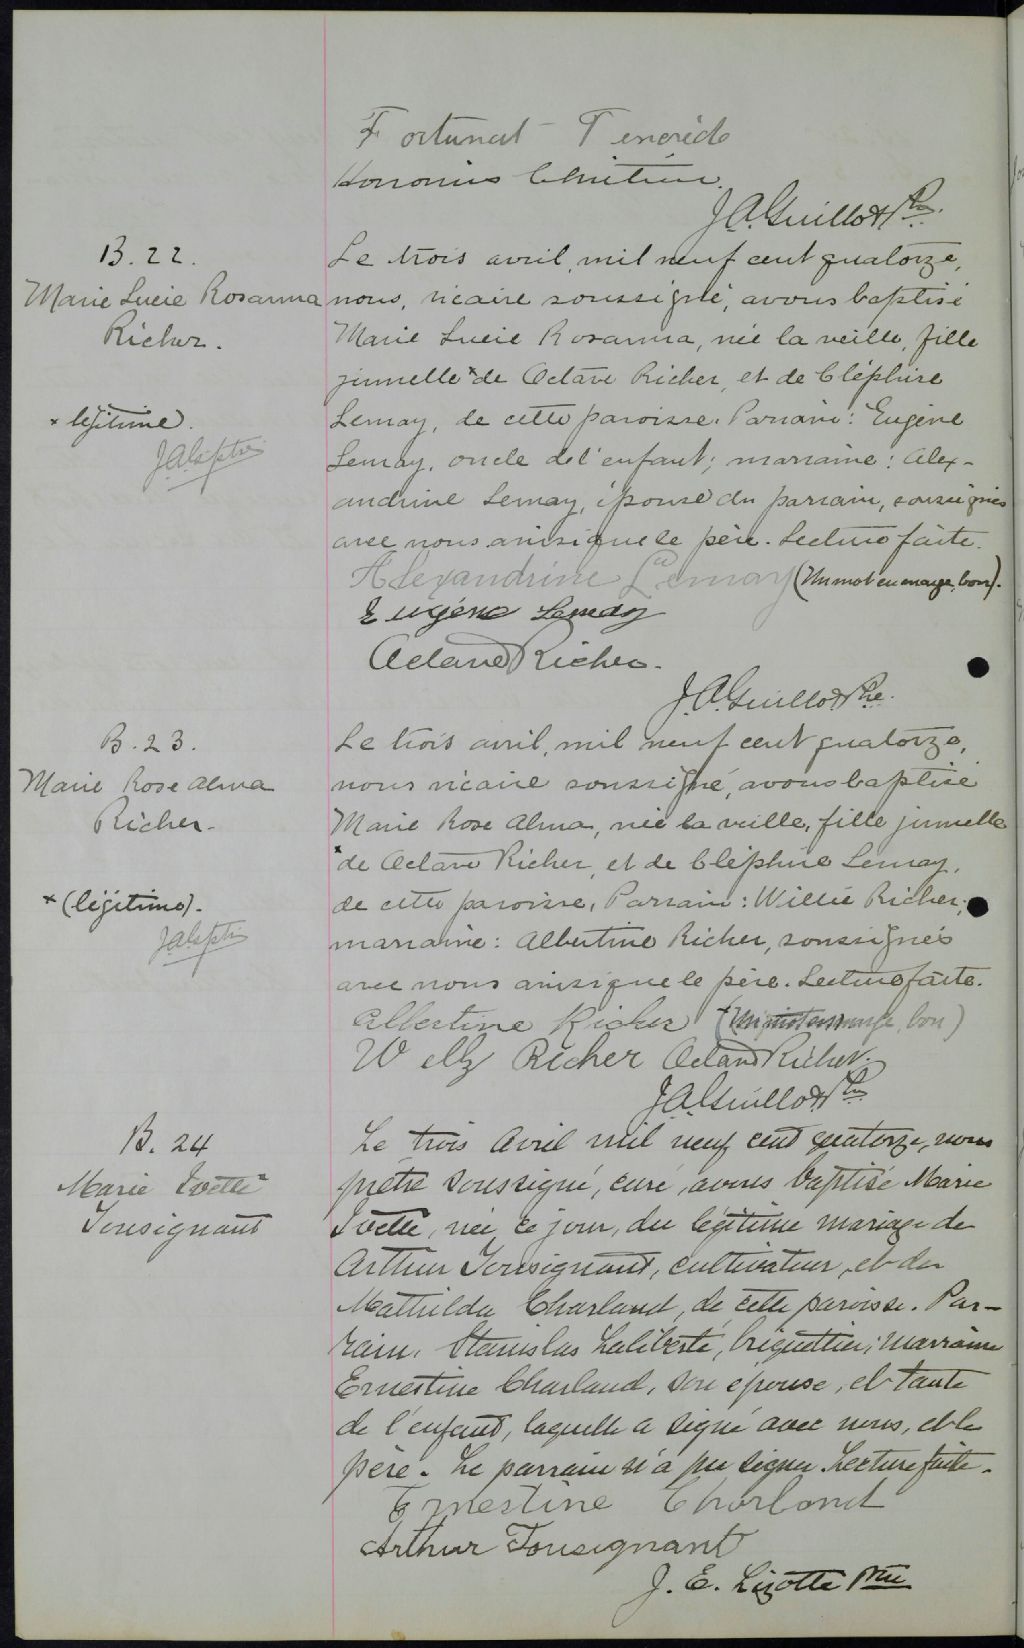 Fortunat Tencrède
Honorius Chrétien.
J.A. Guillot Ptre.
B. 22.
Marie Lucie Rosanna
Richer.
Le trois avril, mil neuf cent quatorze,
nous, vicaire soussigné, avons baptisé
Marie Lucie Rosanna, née la veille, fille
jumelle x de Octave Richer, et de Cléphire
x légitime.
Lemay, de cette paroisse. Parrain: Eugène
Lemay, oncle de l'enfant; marraine: Alex-
andrine Lemay, épouse du parrain, soussignés
avec nous ainsi que le père. Lecture faite.
Alexandrine Lemay (Un mot en marge, bon).
Eugène Lemay
Octave Richer.
J.A. Guillot Ptre.
B. 23.
Marie Rose Alma
Richer.
Le trois avril, mil neuf cent quatorze,
nous vicaire soussigné, avons baptisé
Marie Rose Alma, née la veille, fille jumelle
x de Octave Richer, et de Cléphire Lemay,
x (légitime).
de cette paroisse, Parrain: Willie Richer;
marraine: Albertine Richer, soussignés
avec nous ainsi que le père. Lecture faite.
Albertine Richer (Un mot en marge, bon)
Willy Richer Octave Richer.
J.A. Guillot Ptre
B. 24
Marie Ivette
Tousignant
Le trois Avril mil neuf cent quatorze, nous
prêtre soussigné, curé, avons baptisé Marie
Ivette, née ce jour, du légitime mariage de
Arthur Tousignant, cultivateur, et de
Mathilda Charland, de cette paroisse. Par-
rain, Stanislas Laliberté, briquettier; Marraine
Ernestine Charland, son épouse, et tante
de l'enfant, laquelle a signé avec nous, et le
père. Le parrain n'a pu signer. Lecture faite.
Ernestine Charland
Arthur Tousignant
J. E. Lizotte Ptre